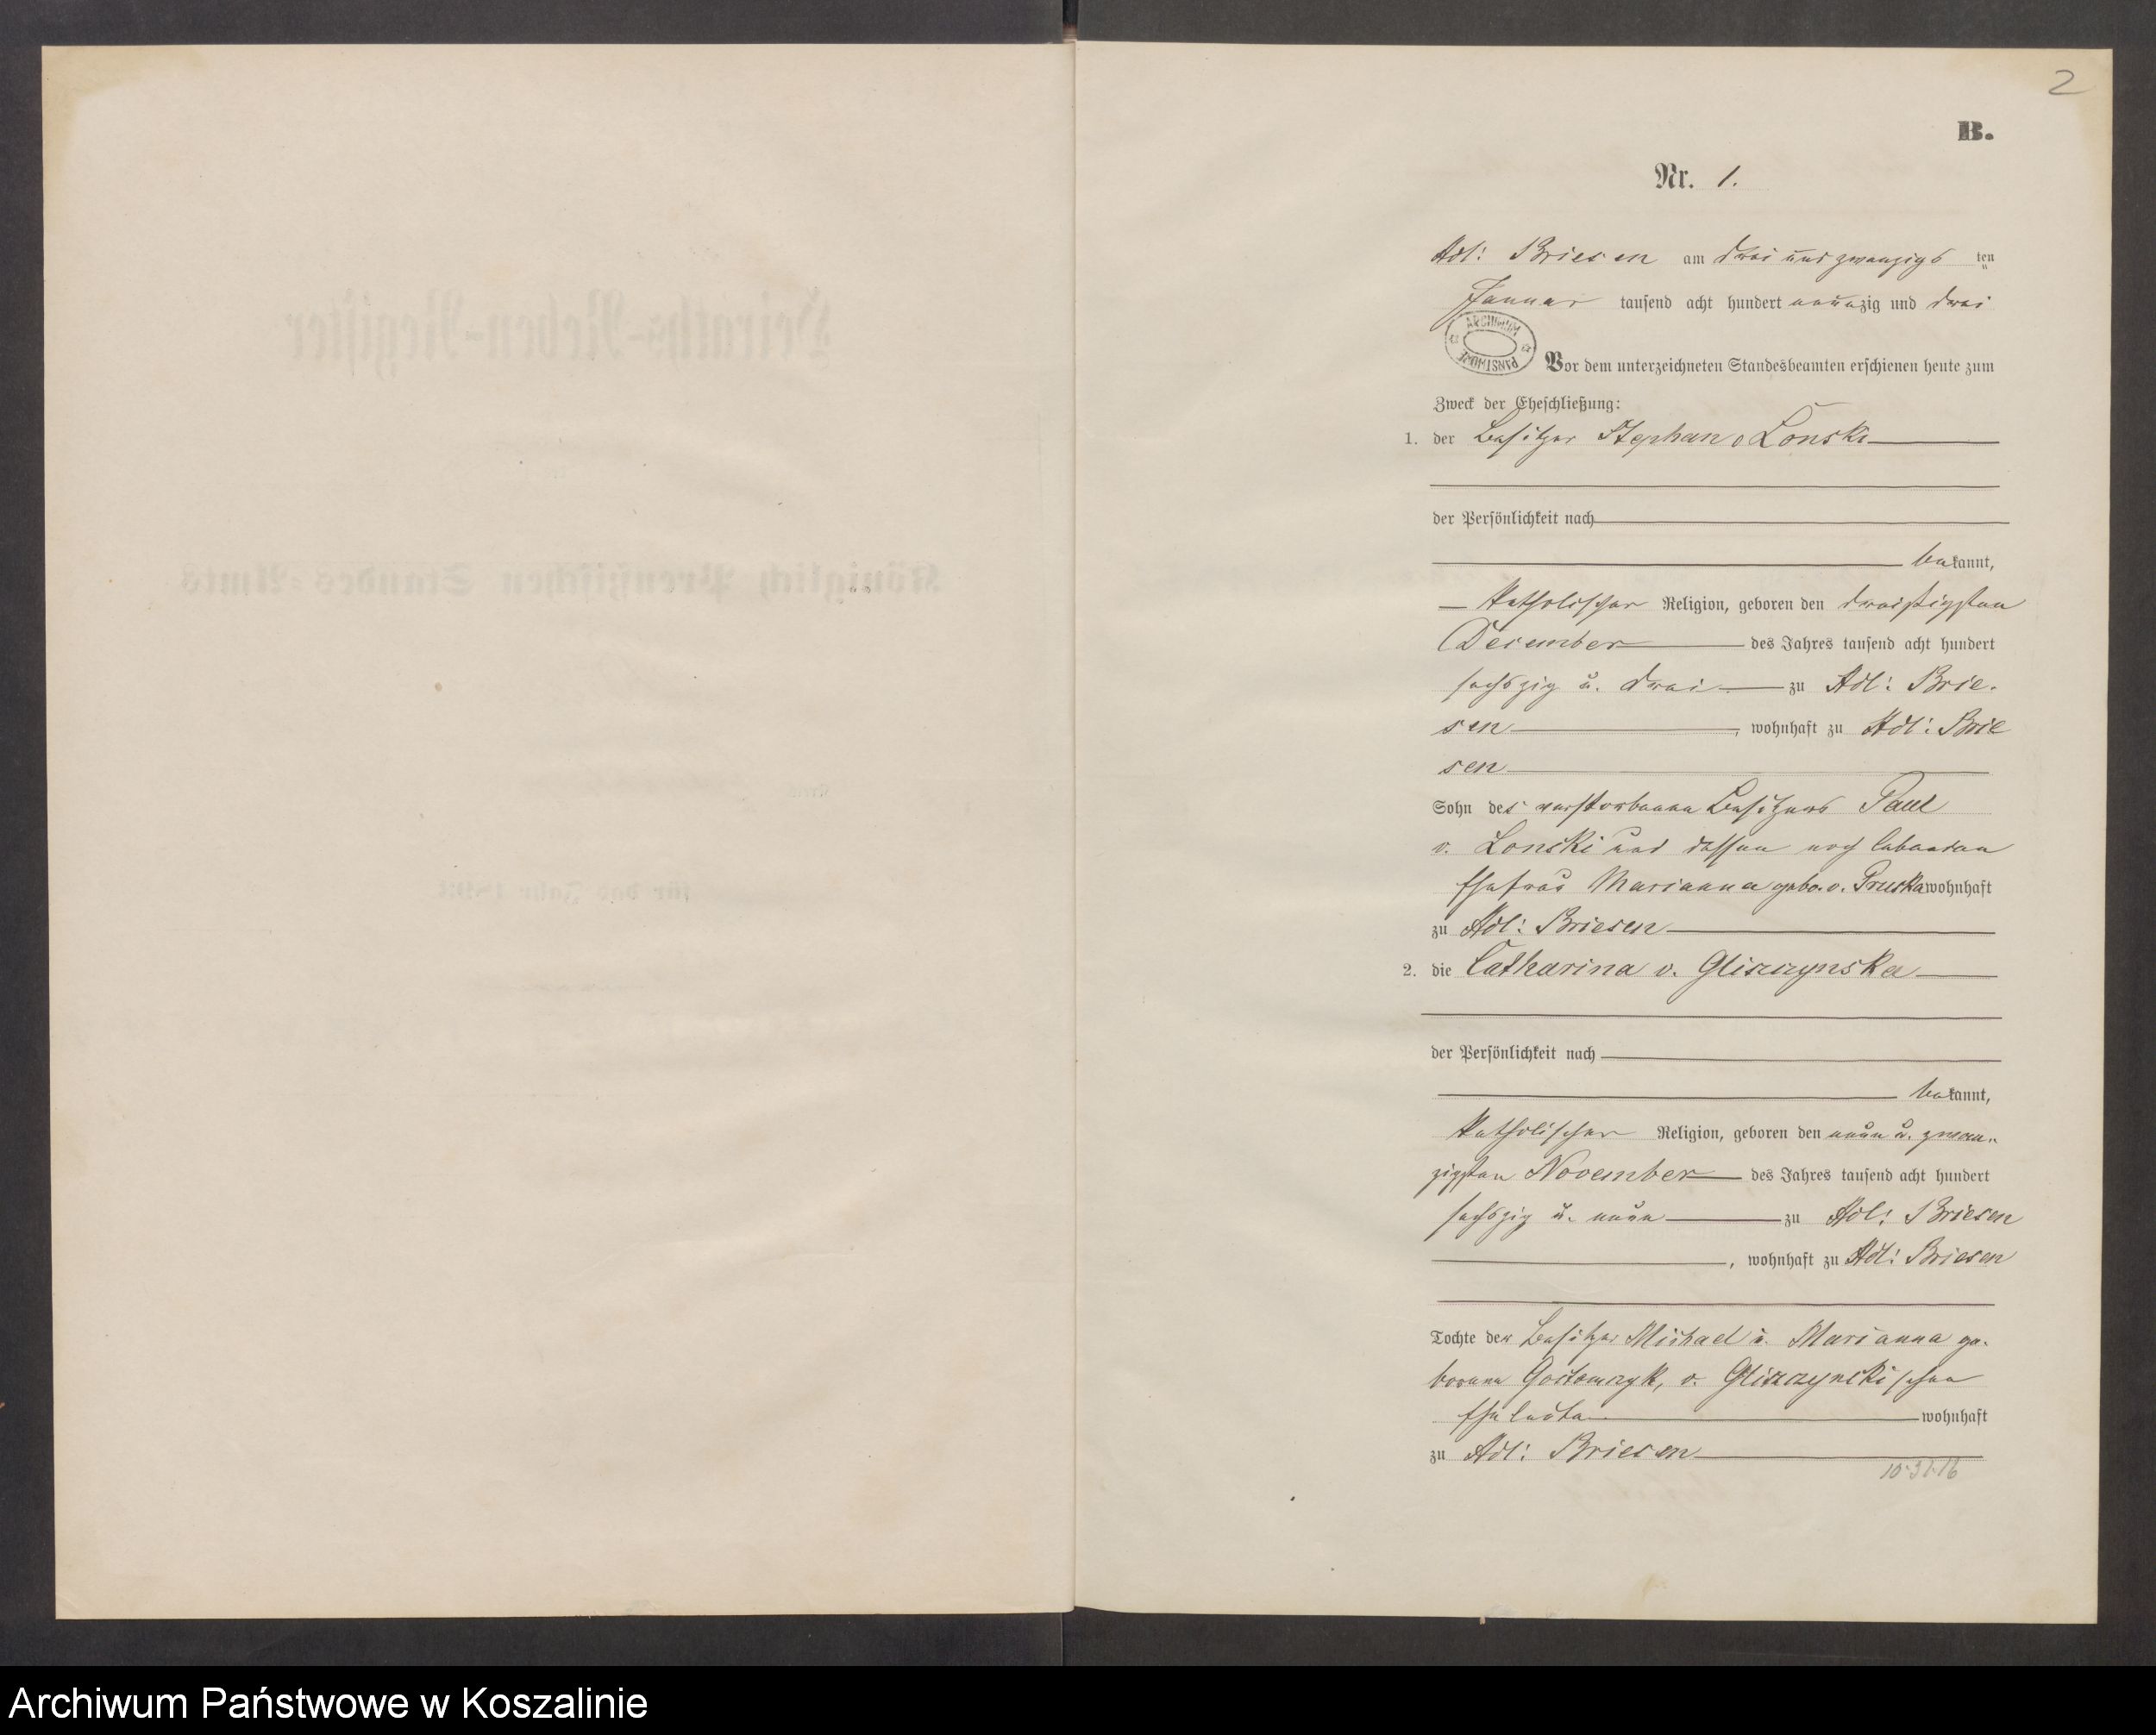 2
B.
Nr. 1.
Adl: Briesen am drei und zwanzigs ten
Januar tausend acht hundert neunzig und drei
ARCHIWUM PAŃSTWOWE
Vor dem unterzeichneten Standesbeamten erschienen heute zum
Zweck der Eheschließung:
1. der Besitzer Stephan v Lonski
der Persönlichkeit nach
bekannt,
katholischer Religion, geboren den dreißigsten
December des Jahres tausend acht hundert
sechszig u. drei zu Adl: Brie-
sen, wohnhaft zu Adl: Brie
sen
Sohn des verstorbenen Besitzers Paul
v. Lonski und dessen noch lebenden
Ehefrau Marianna gebo. v. Pruska wohnhaft
zu Adl: Briesen
2. die Catharina v. Gliszczynska
der Persönlichkeit nach
bekannt,
katholischer Religion, geboren den neun u. zwan-
zigsten November des Jahres tausend acht hundert
sechszig u. neun zu Adl: Briesen
, wohnhaft zu Adl: Briesen
Tochte der Besitzer Michael u. Marianna ge-
borene Gostomczyk, v. Gliszczynski schen
Eheleute wohnhaft
zu Adl: Briesen
10-31-16
Heiraths-Neben-Register
Königlich Preußischen Standes-Amts
Kreis
für das Jahr 1893
Archiwum Państwowe w Koszalinie